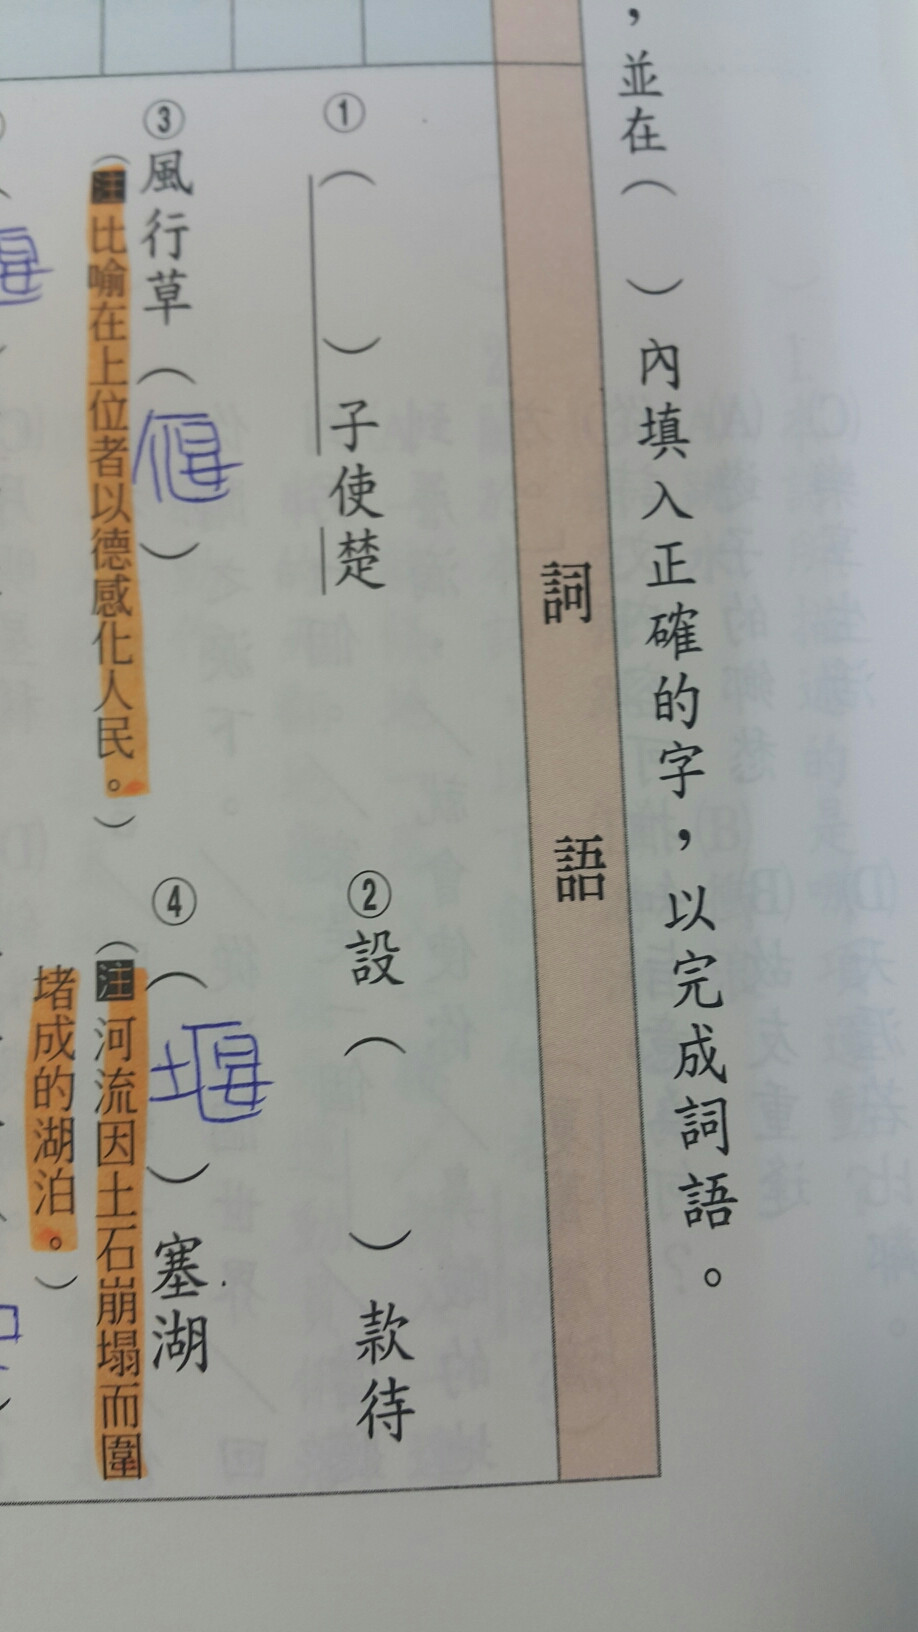 ，並在（　）內填入正確的字，以完成詞語。
詞語
①（　）子使楚
②設（　）款待
③風行草（偃）
（注比喻在上位者以德感化人民。）
④（堰）塞湖
（注河流因土石崩塌而圍
堵成的湖泊。）